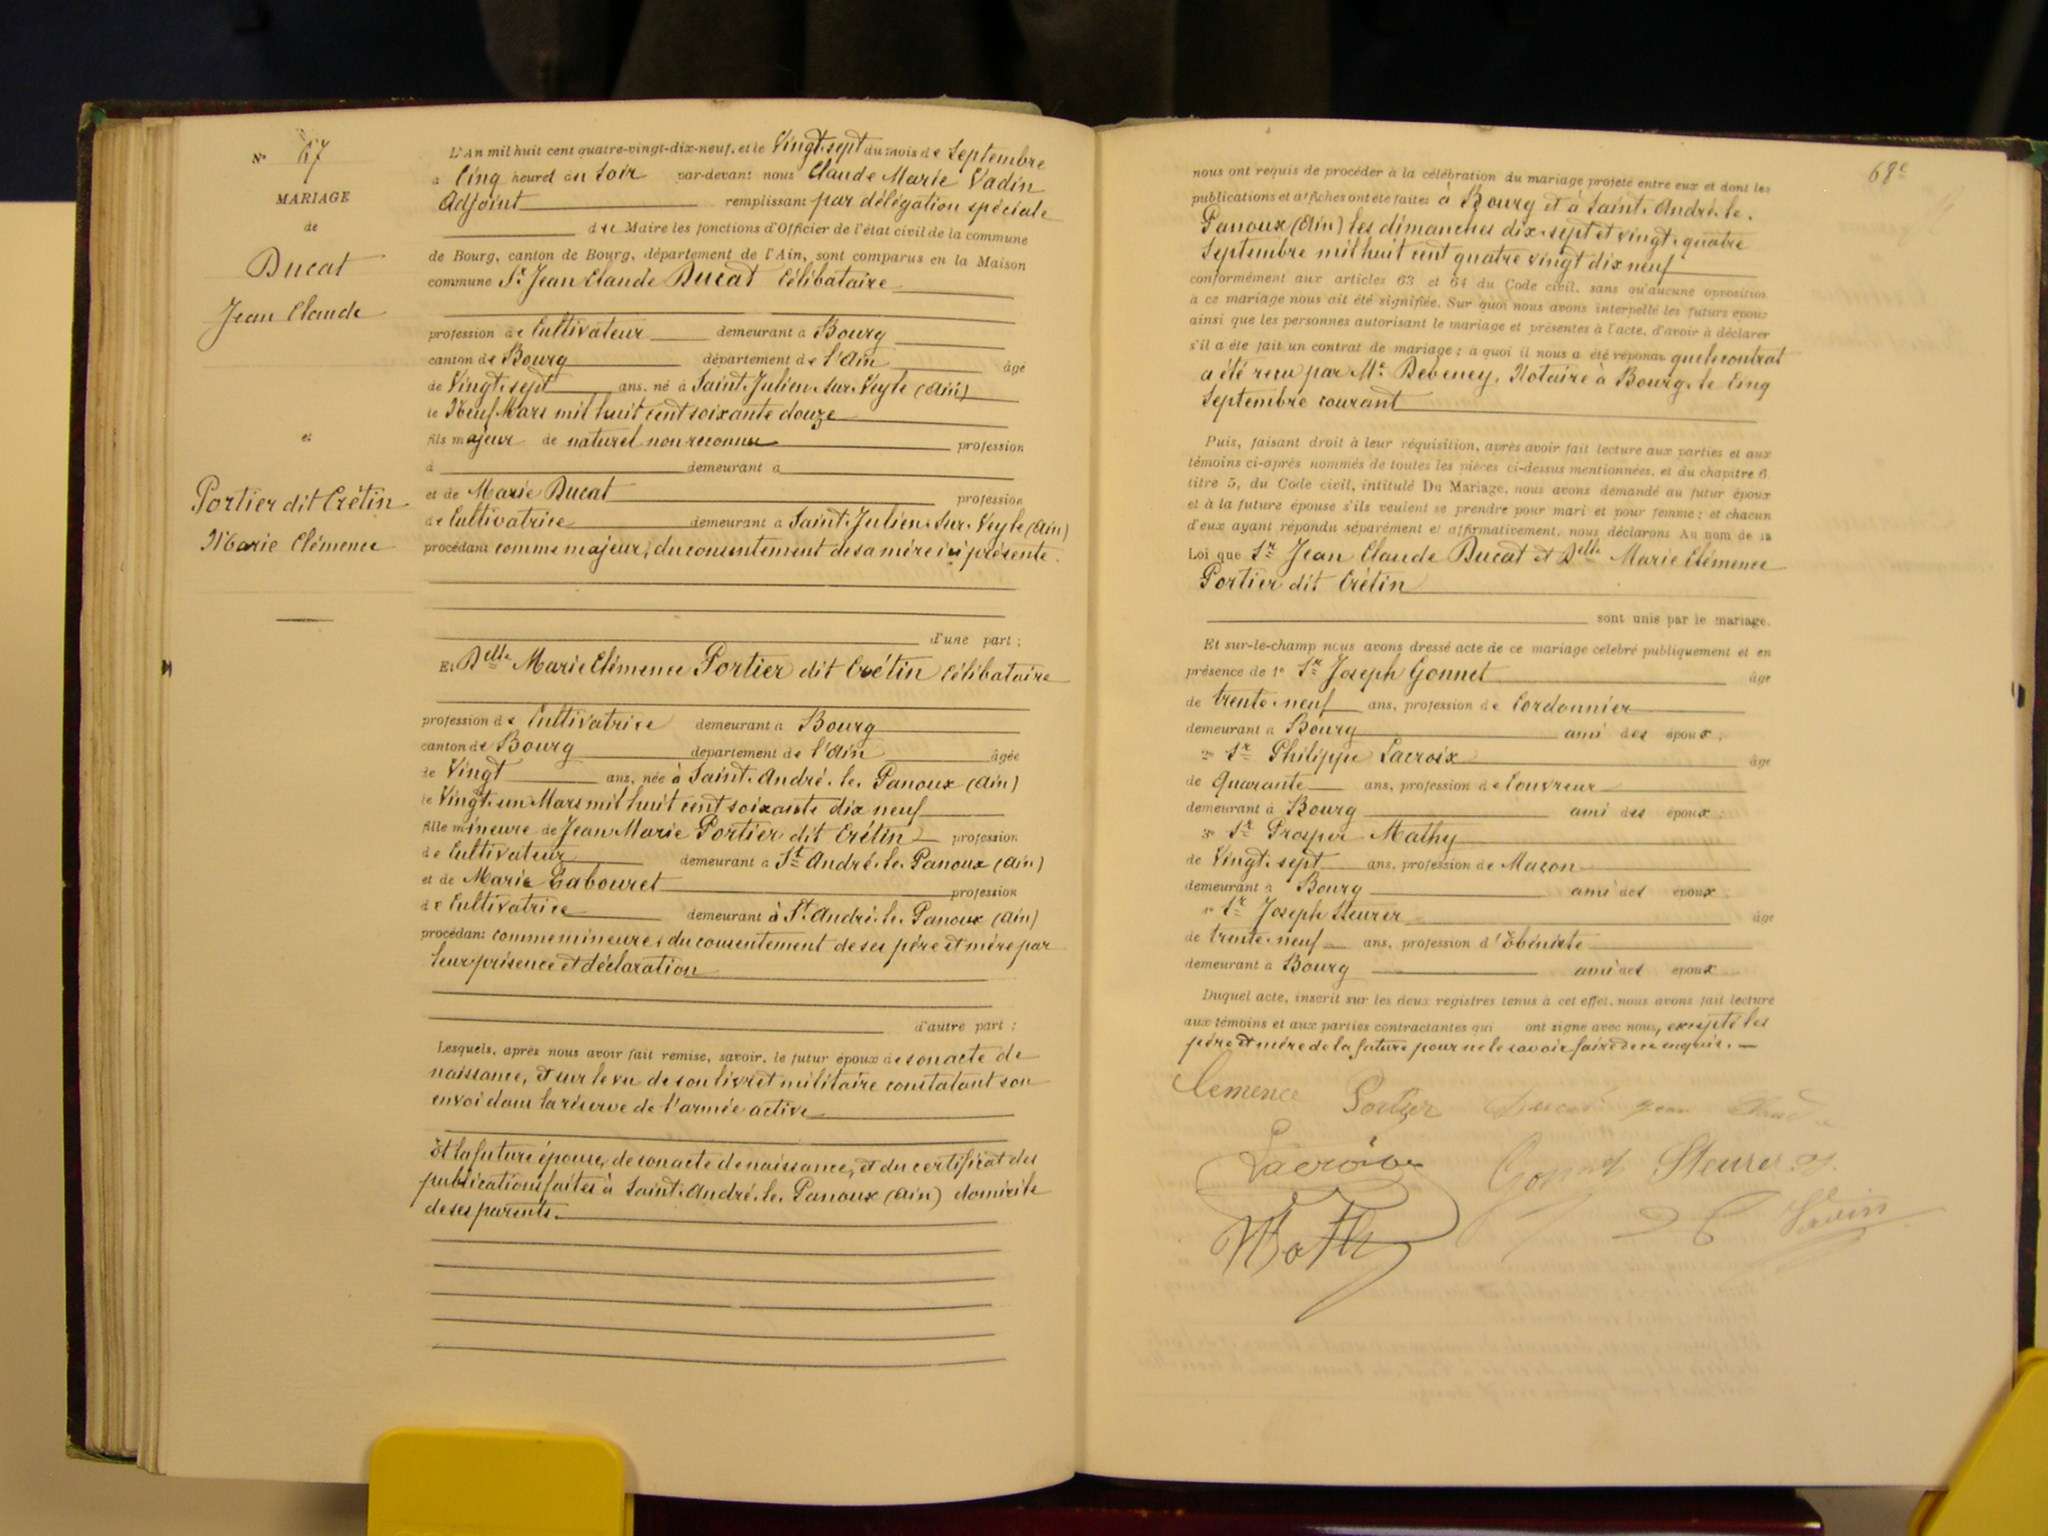 N° 67
MARIAGE
de
Ducat
Jean Claude
et
Portier dit Crétin
Marie Clémence
L'An mil huit cent quatre-vingt-dix-neuf, et le Vingt-sept du mois de Septembre
à Cinq heures du Soir par-devant nous Claude Marie Vadin
Adjoint remplissant par délégation spéciale
du Maire les fonctions d'Officier de l'état civil de la commune
de Bourg, canton de Bourg, département de l'Ain, sont comparus en la Maison
commune Sr Jean Claude Ducat Célibataire
profession de Cultivateur demeurant à Bourg
canton de Bourg département de l'Ain âgé
de Vingt-sept ans, né à Saint-Julien-sur-Veyle (Ain)
le Neuf Mars mil huit cent soixante douze
fils majeur de naturel non reconnu profession
d demeurant à
et de Marie Ducat profession
de Cultivatrice demeurant à Saint-Julien-sur-Veyle (Ain)
procédant comme majeur, du consentement de sa mère ici présente.
d'une part ;
Et Delle Marie Clémence Portier dit Crétin Célibataire
profession de Cultivatrice demeurant à Bourg
canton de Bourg département de l'Ain âgée
de Vingt ans, née à Saint-André-le-Panoux (Ain)
le Vingt-un Mars mil huit cent soixante dix neuf
fille mineure de Jean Marie Portier dit Crétin profession
de Cultivateur demeurant à St André-le-Panoux (Ain)
et de Marie Labouret profession
de Cultivatrice demeurant à St André-le-Panoux (Ain)
procédant comme mineure, du consentement de ses père et mère par
leur présence et déclaration
d'autre part ;
Lesquels, après nous avoir fait remise, savoir, le futur époux de son acte de
naissance, et sur le vu de son livret militaire constatant son
envoi dans la réserve de l'armée active
Et la future épouse, de son acte de naissance, et du certificat des
publications faites à Saint-André-le-Panoux (Ain) domicile
de ses parents.
68e
nous ont requis de procéder à la célébration du mariage projeté entre eux et dont les
publications et affiches ont été faites à Bourg et à Saint-André-le-
Panoux (Ain) les dimanches dix-sept et vingt-quatre
Septembre mil huit cent quatre vingt dix neuf
conformément aux articles 63 et 64 du Code civil, sans qu'aucune opposition
à ce mariage nous ait été signifiée. Sur quoi nous avons interpellé les futurs époux
ainsi que les personnes autorisant le mariage et présentes à l'acte, d'avoir à déclarer
s'il a été fait un contrat de mariage ; à quoi il nous a été répondu que le contrat
a été reçu par Me Debeney, Notaire à Bourg, le Cinq
Septembre courant
Puis, faisant droit à leur réquisition, après avoir fait lecture aux parties et aux
témoins ci-après nommés de toutes les pièces ci-dessus mentionnées, et du chapitre 6
titre 5, du Code civil, intitulé Du Mariage, nous avons demandé au futur époux
et à la future épouse s'ils veulent se prendre pour mari et pour femme ; et chacun
d'eux ayant répondu séparément et affirmativement, nous déclarons Au nom de la
Loi que Sr Jean Claude Ducat et Delle Marie Clémence
Portier dit Crétin
sont unis par le mariage.
Et sur-le-champ nous avons dressé acte de ce mariage célébré publiquement et en
présence de 1° Sr Joseph Gonnet âgé
de trente-neuf ans, profession de Cordonnier
demeurant à Bourg ami des époux ;
2° Sr Philippe Lacroix âgé
de Quarante ans, profession de Couvreur
demeurant à Bourg ami des époux ;
3° Sr Prosper Mathy
de Vingt-sept ans, profession de Maçon
demeurant à Bourg ami des époux ;
4° Sr Joseph Steurer âgé
de trente-neuf ans, profession d'Ebéniste
demeurant à Bourg ami des époux
Duquel acte, inscrit sur les deux registres tenus à cet effet, nous avons fait lecture
aux témoins et aux parties contractantes qui ont signé avec nous, excepté les
père et mère de la future pour ne le savoir faire de ce enquis.
Clemence Portier Ducat jean Claude
Lacroix Gonnet Steurer J.
Mathy Vadin